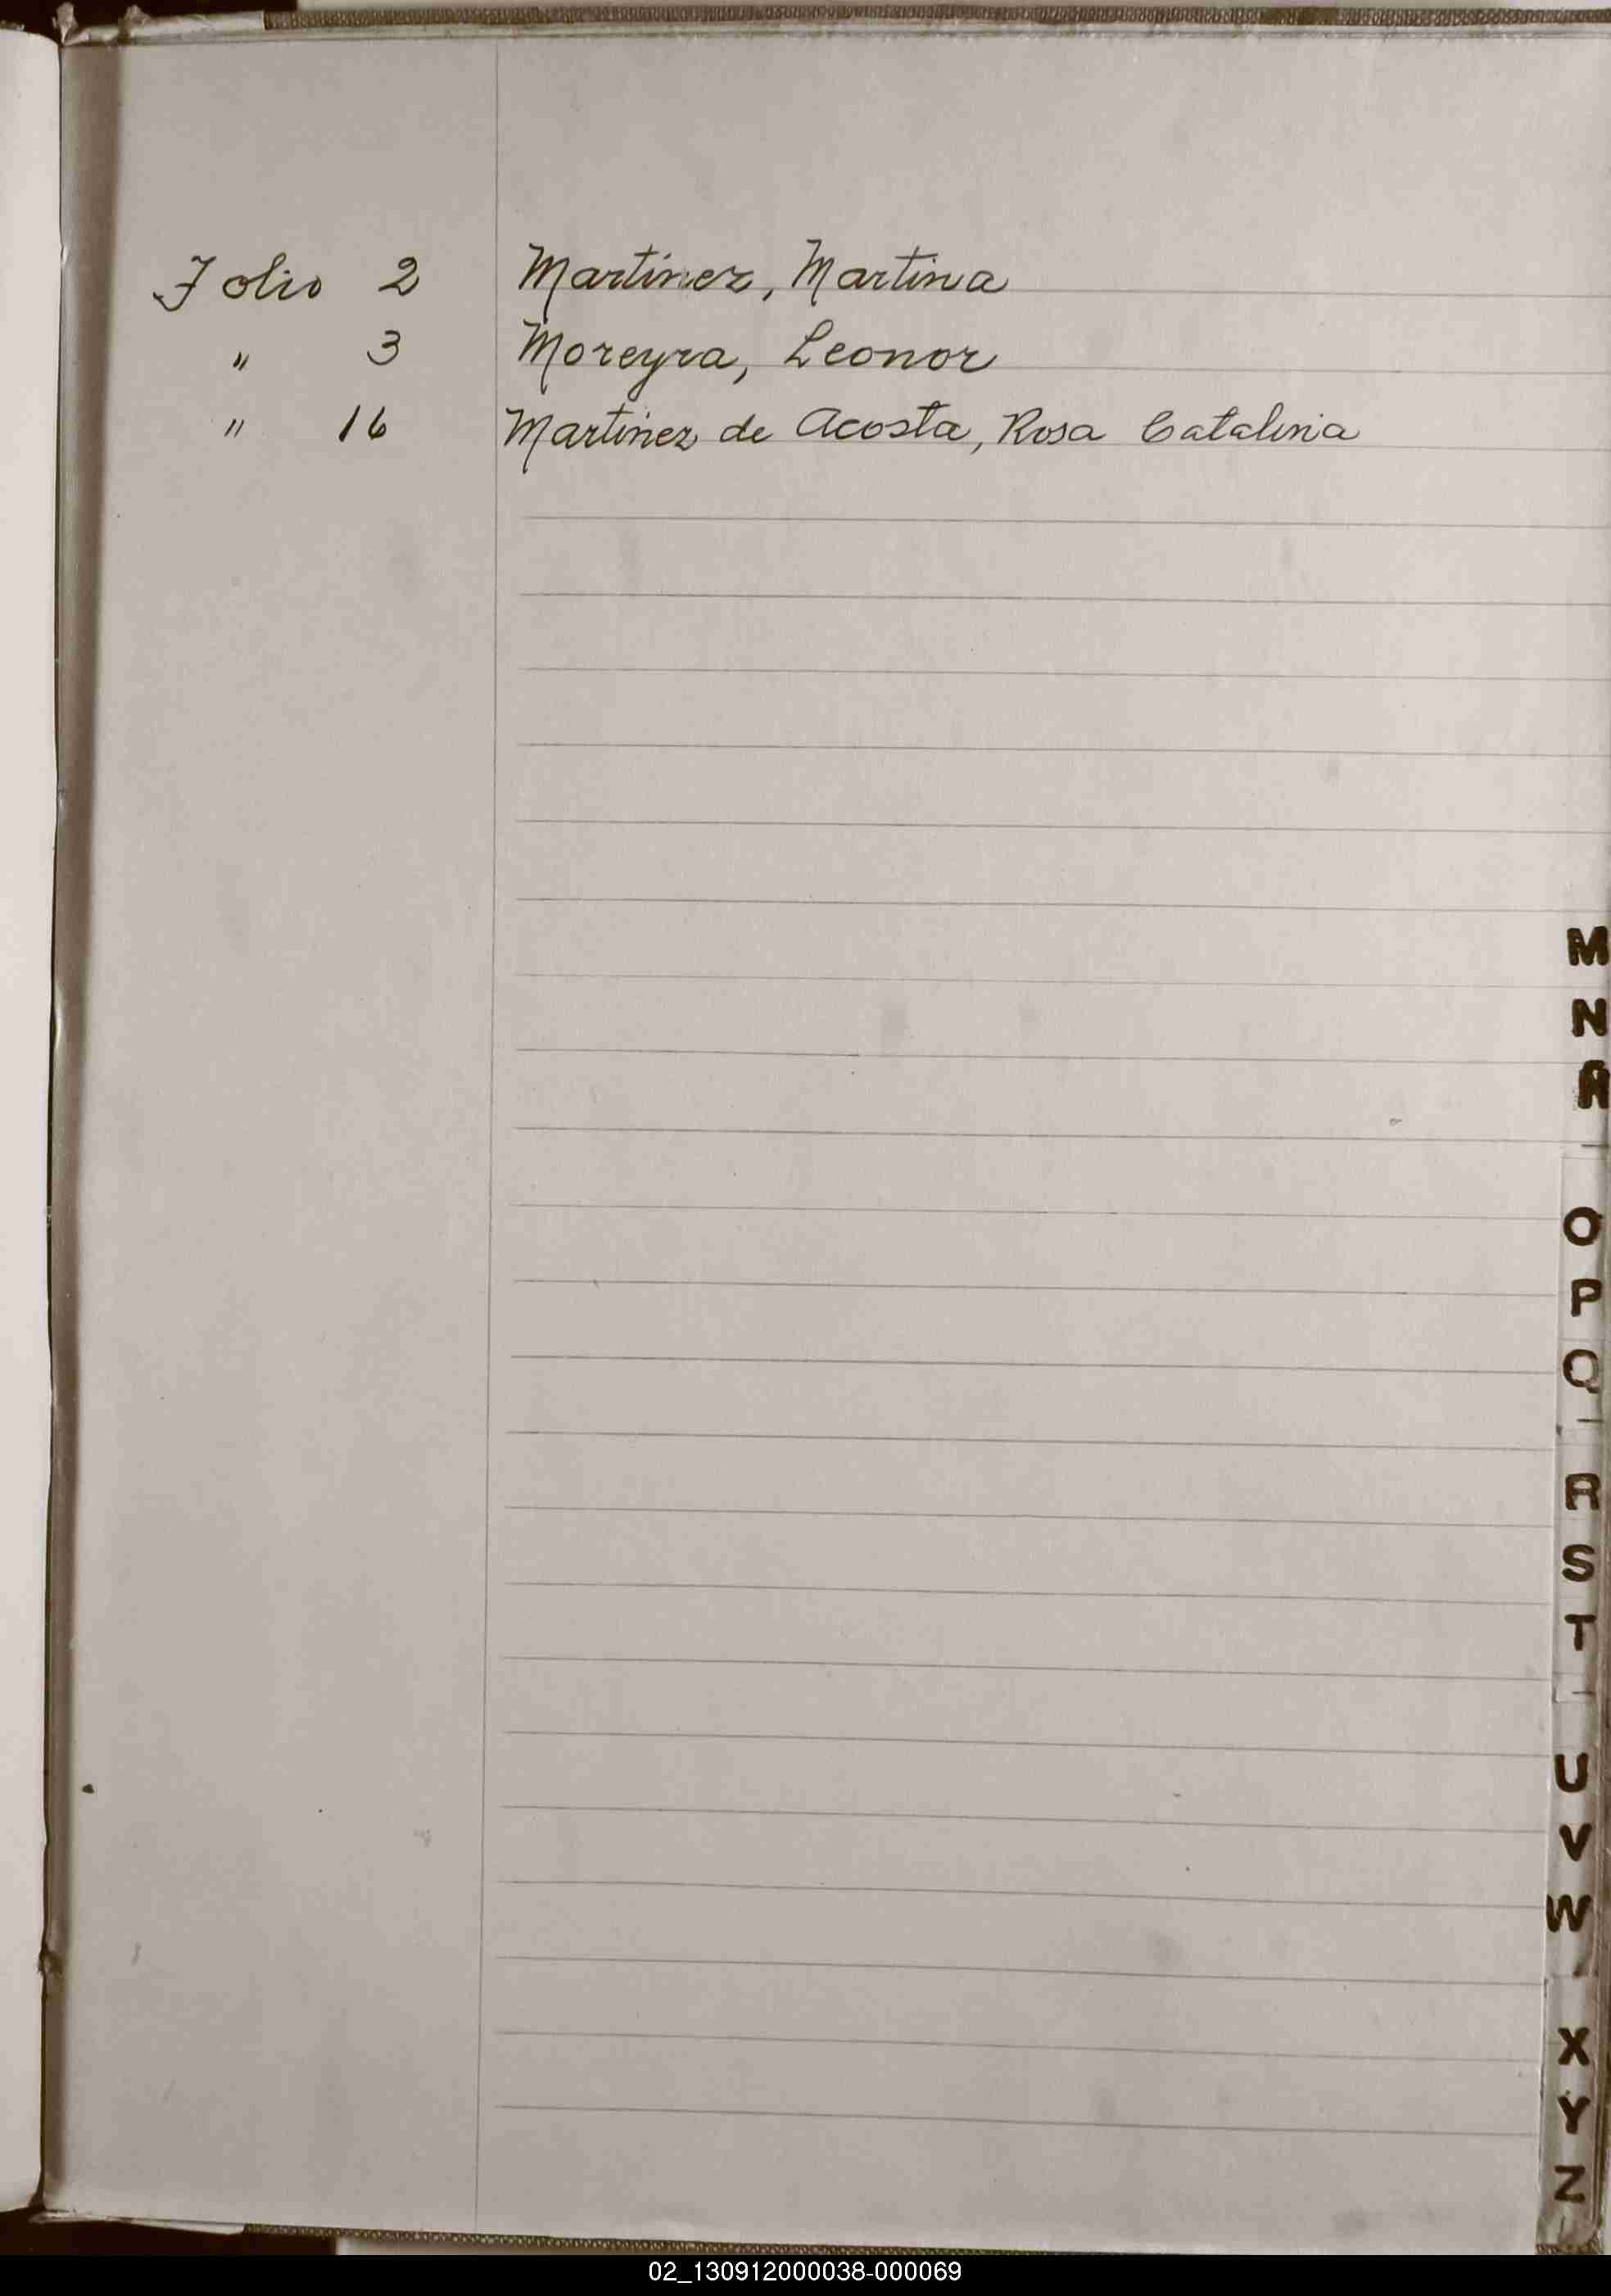 Folio 2 Martinez, Martina
" 3 Moreyra, Leonor
" 16 Martinez de Acosta, Rosa Catalina
M
N
Ñ
O
P
Q
R
S
T
U
V
W
X
Y
Z
02_130912000038-000069